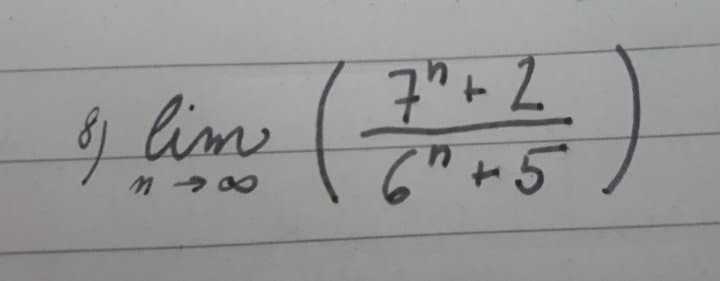 8) lim n→∞ ( (7ⁿ + 2) / (6ⁿ + 5) )